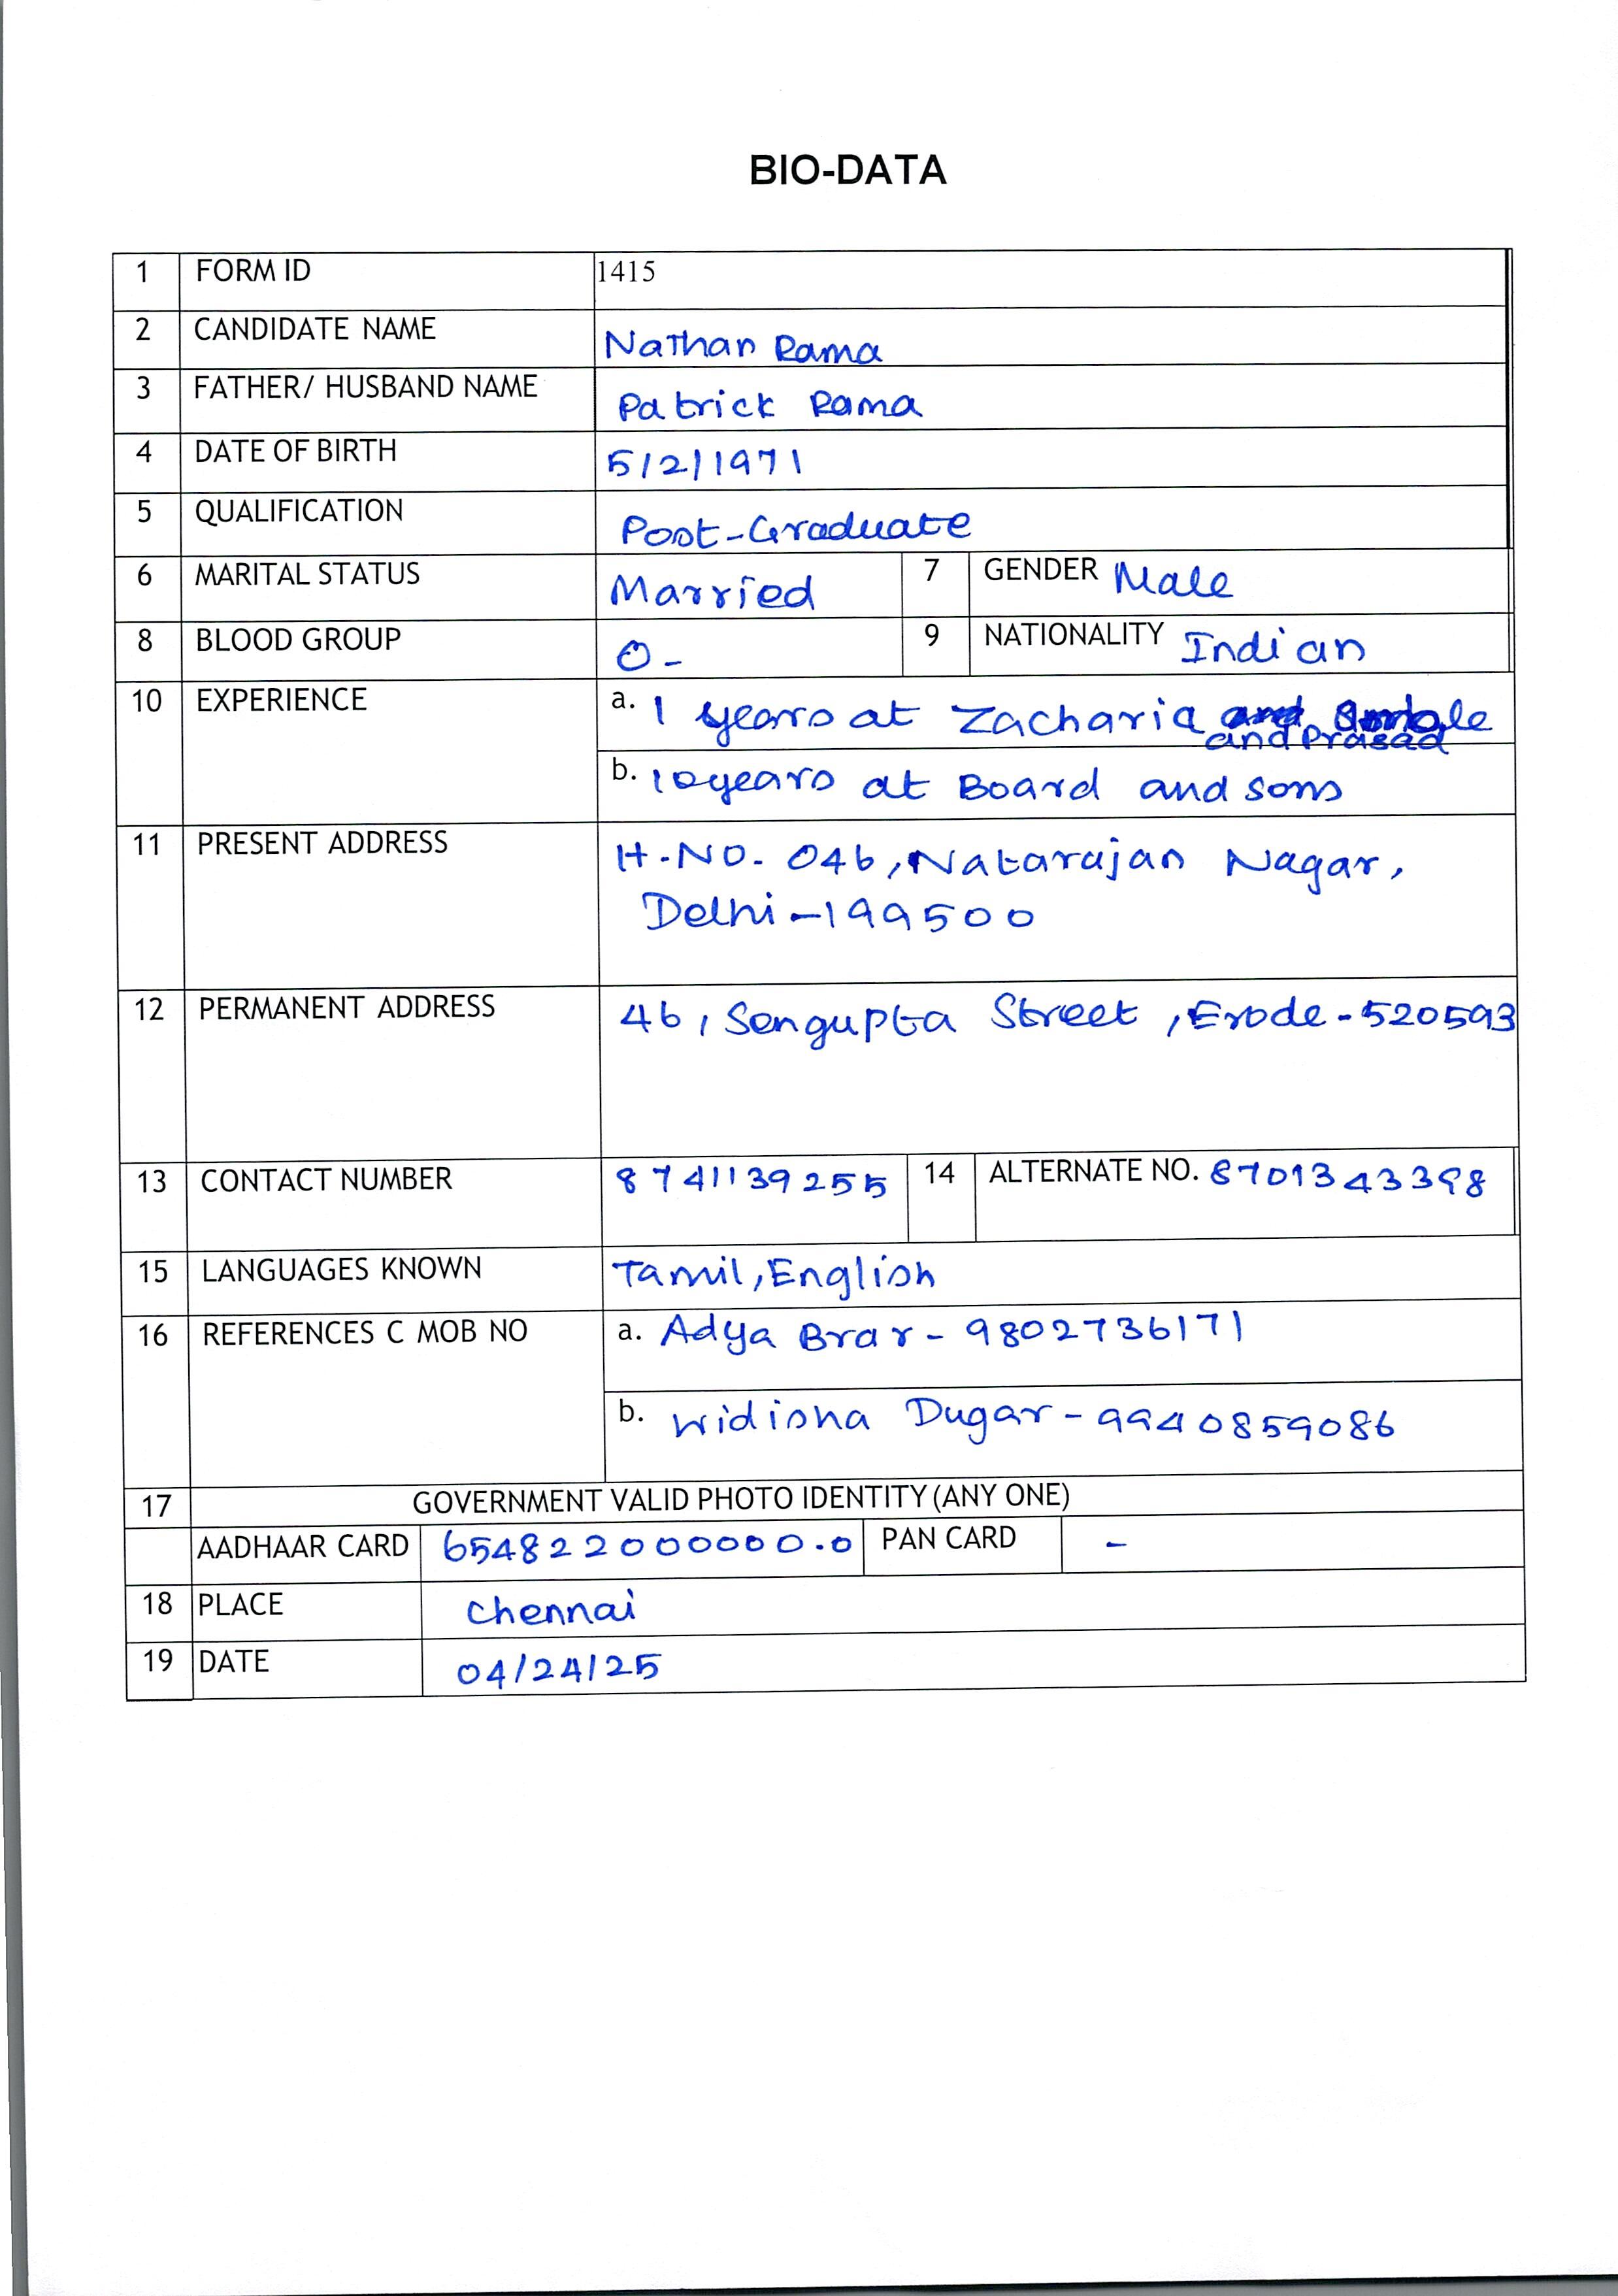 BIO-DATA
1 FORM ID 1415
2 CANDIDATE NAME Nathan Rama
3 FATHER/ HUSBAND NAME Patrick Rama
4 DATE OF BIRTH 5/2/1971
5 QUALIFICATION Post-Graduate
6 MARITAL STATUS Married 7 GENDER Male
8 BLOOD GROUP O- 9 NATIONALITY Indian
10 EXPERIENCE a. 1 years at Zacharia
and Prasad
b. 10 years at Board and sons
11 PRESENT ADDRESS H.NO. 046, Natarajan Nagar,
Delhi-199500
12 PERMANENT ADDRESS 46, Sengupta Street, Erode-520593
13 CONTACT NUMBER 8741139255 14 ALTERNATE NO. 8701343398
15 LANGUAGES KNOWN Tamil, English
16 REFERENCES C MOB NO a. Adya Brar - 9802736171
b. Widisha Dugar - 9940859086
17 GOVERNMENT VALID PHOTO IDENTITY (ANY ONE)
AADHAAR CARD 654822000000.0 PAN CARD -
18 PLACE Chennai
19 DATE 04/24/25